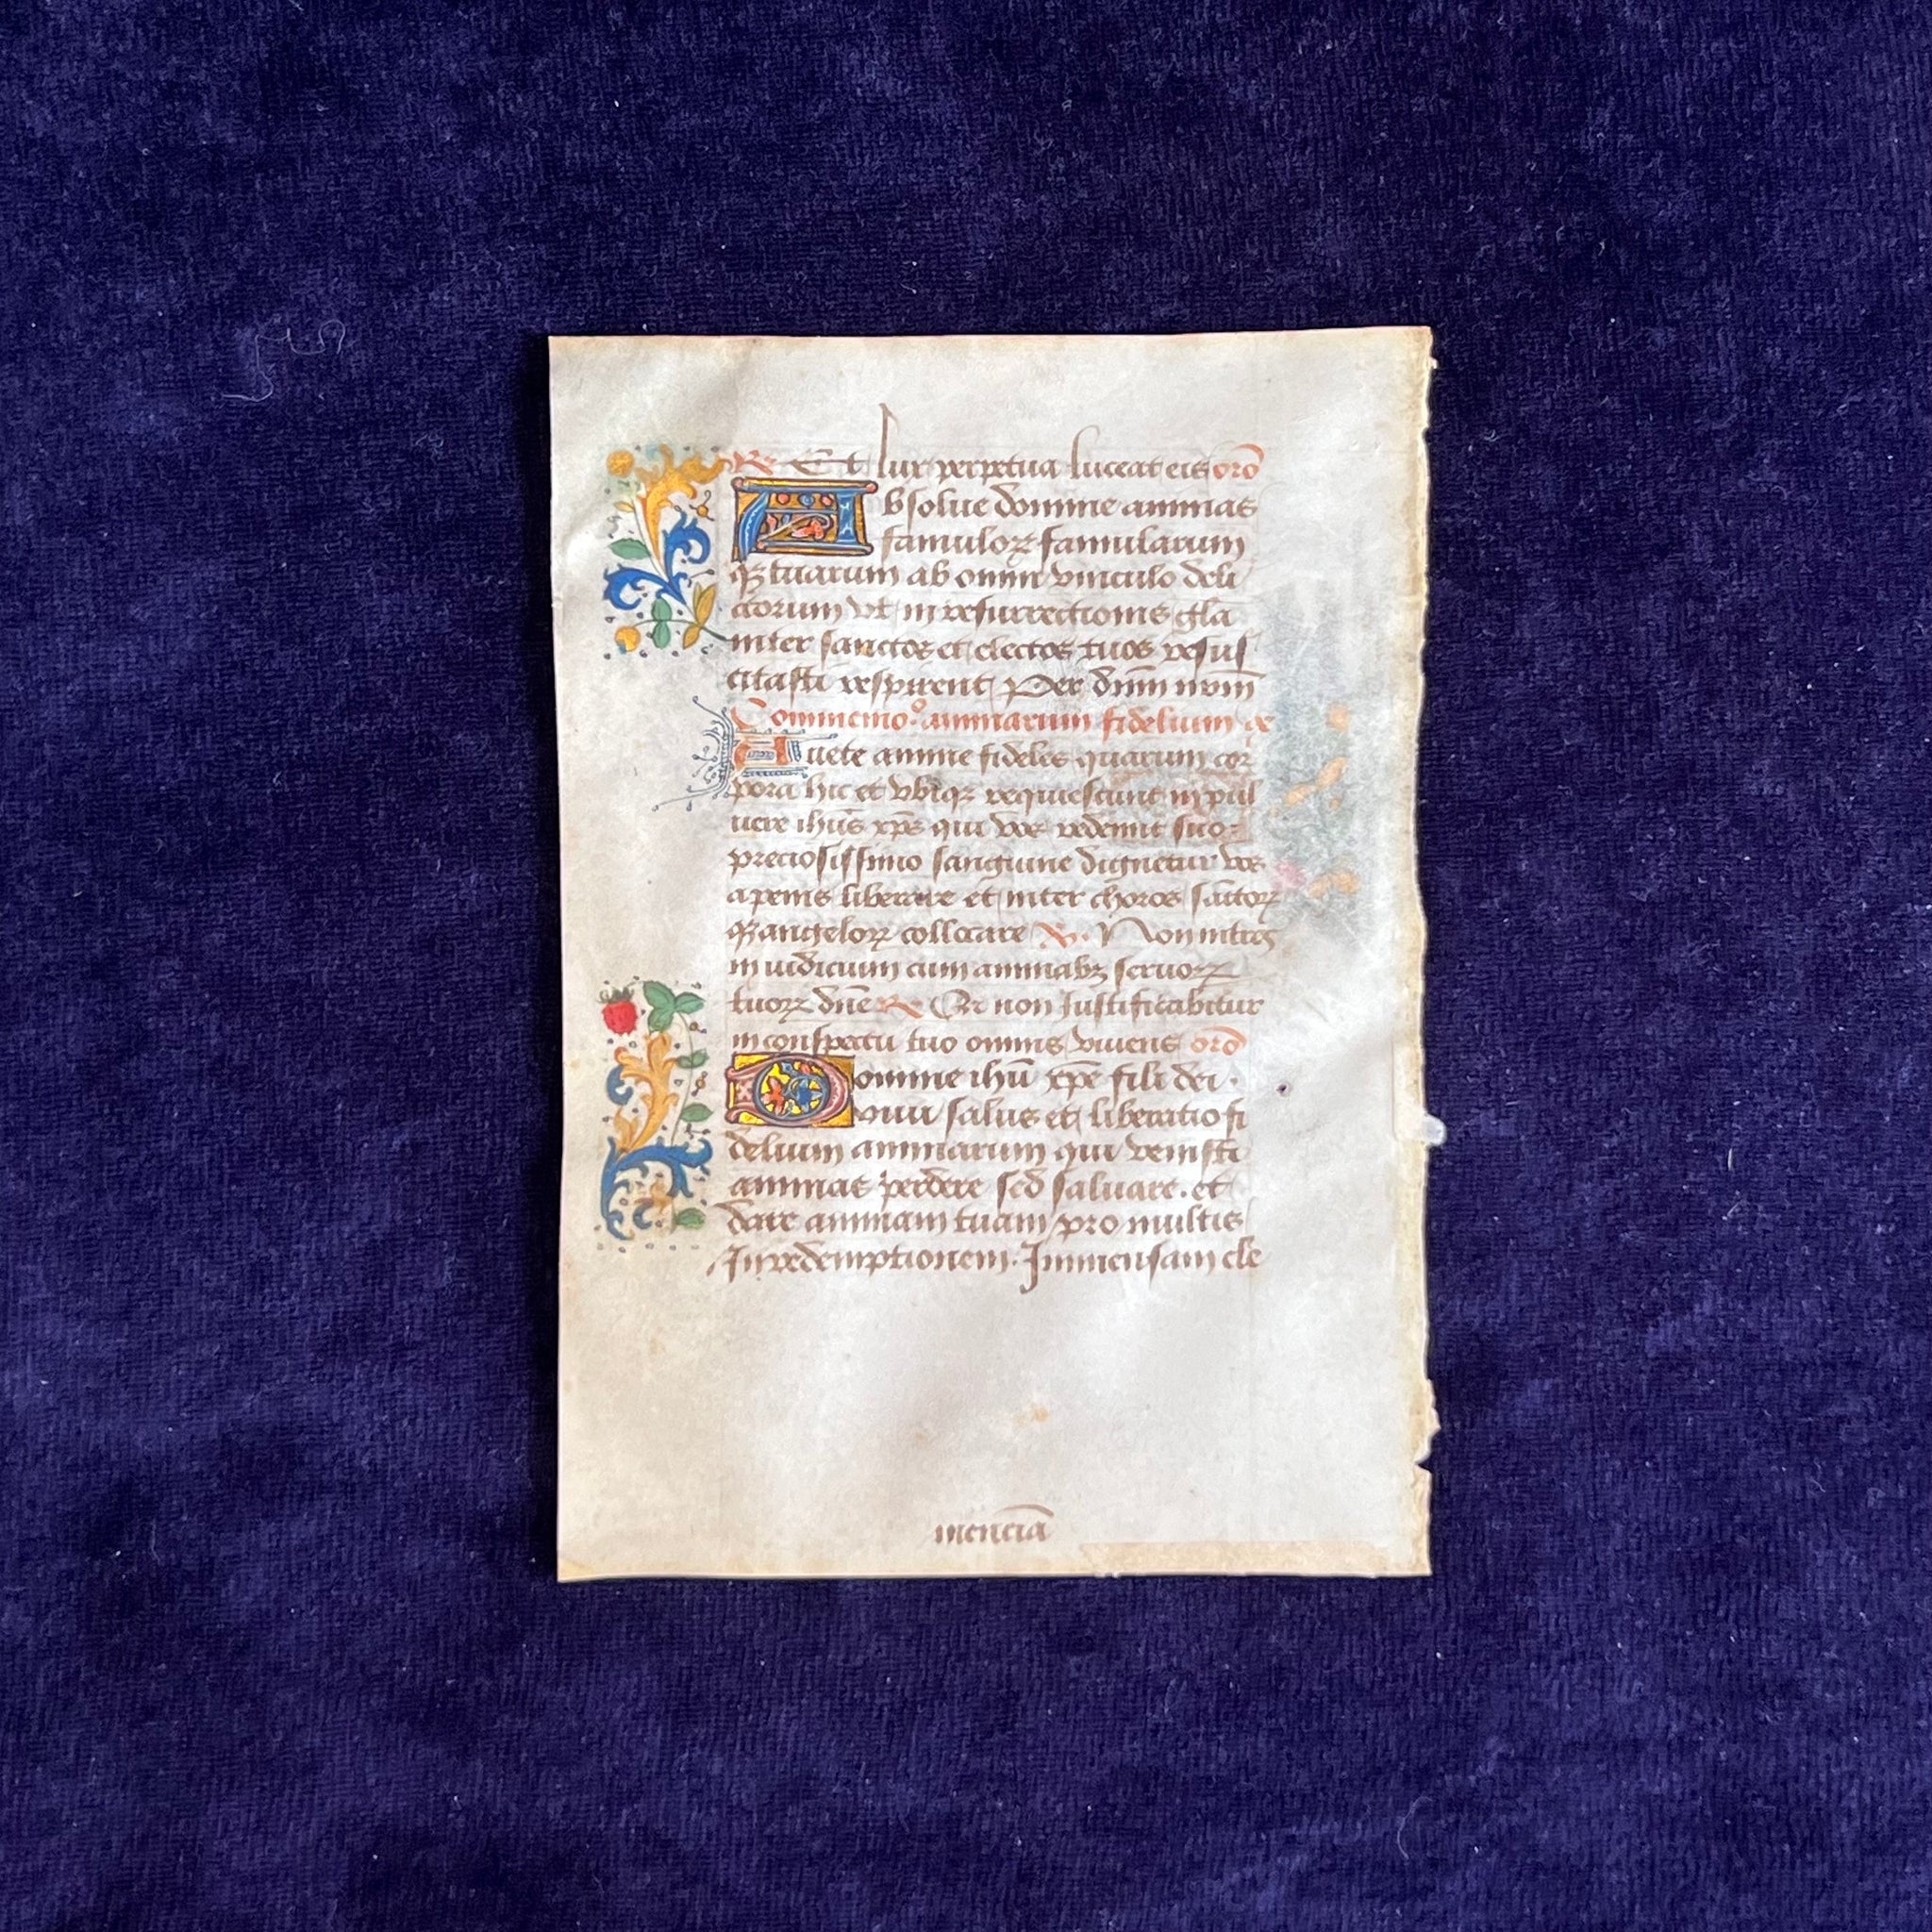 R Et lux perpetua luceat eis oro̅
Absolue domine animas
famuloꝝ famularum
qꝫ tuarum ab omni vinculo deli
ctorum vt in resurrectionis gl̅a
inter sanctos et electos tuos resus
citasti respirent Per dn̅m nr̅m
Commemoᵒ. animarum fidelium
Auete anime fideles quarum cor
pora hic et vbiqꝫ requiescunt in pul
uere ihu̅s xp̅s qui vos redemit suo
preciosissimo sanguine dignetur vos
a penis liberare et inter choros sa̅ctoꝝ
qꝫ angeloꝝ collocare ℣. Non intres
in iudicium cum animabꝫ seruoꝝ
tuoꝝ dn̅e R Qr non Justificabitur
in conspectu tuo omnis viuens oro̅
Domine ihu̅ xp̅e fili dei.
viui salus et liberatio fi
delium animarum qui venisti
animas perdere sed saluare. et
dare animam tuam pro multis
In redemptionem. Immensam cle
mencia̅